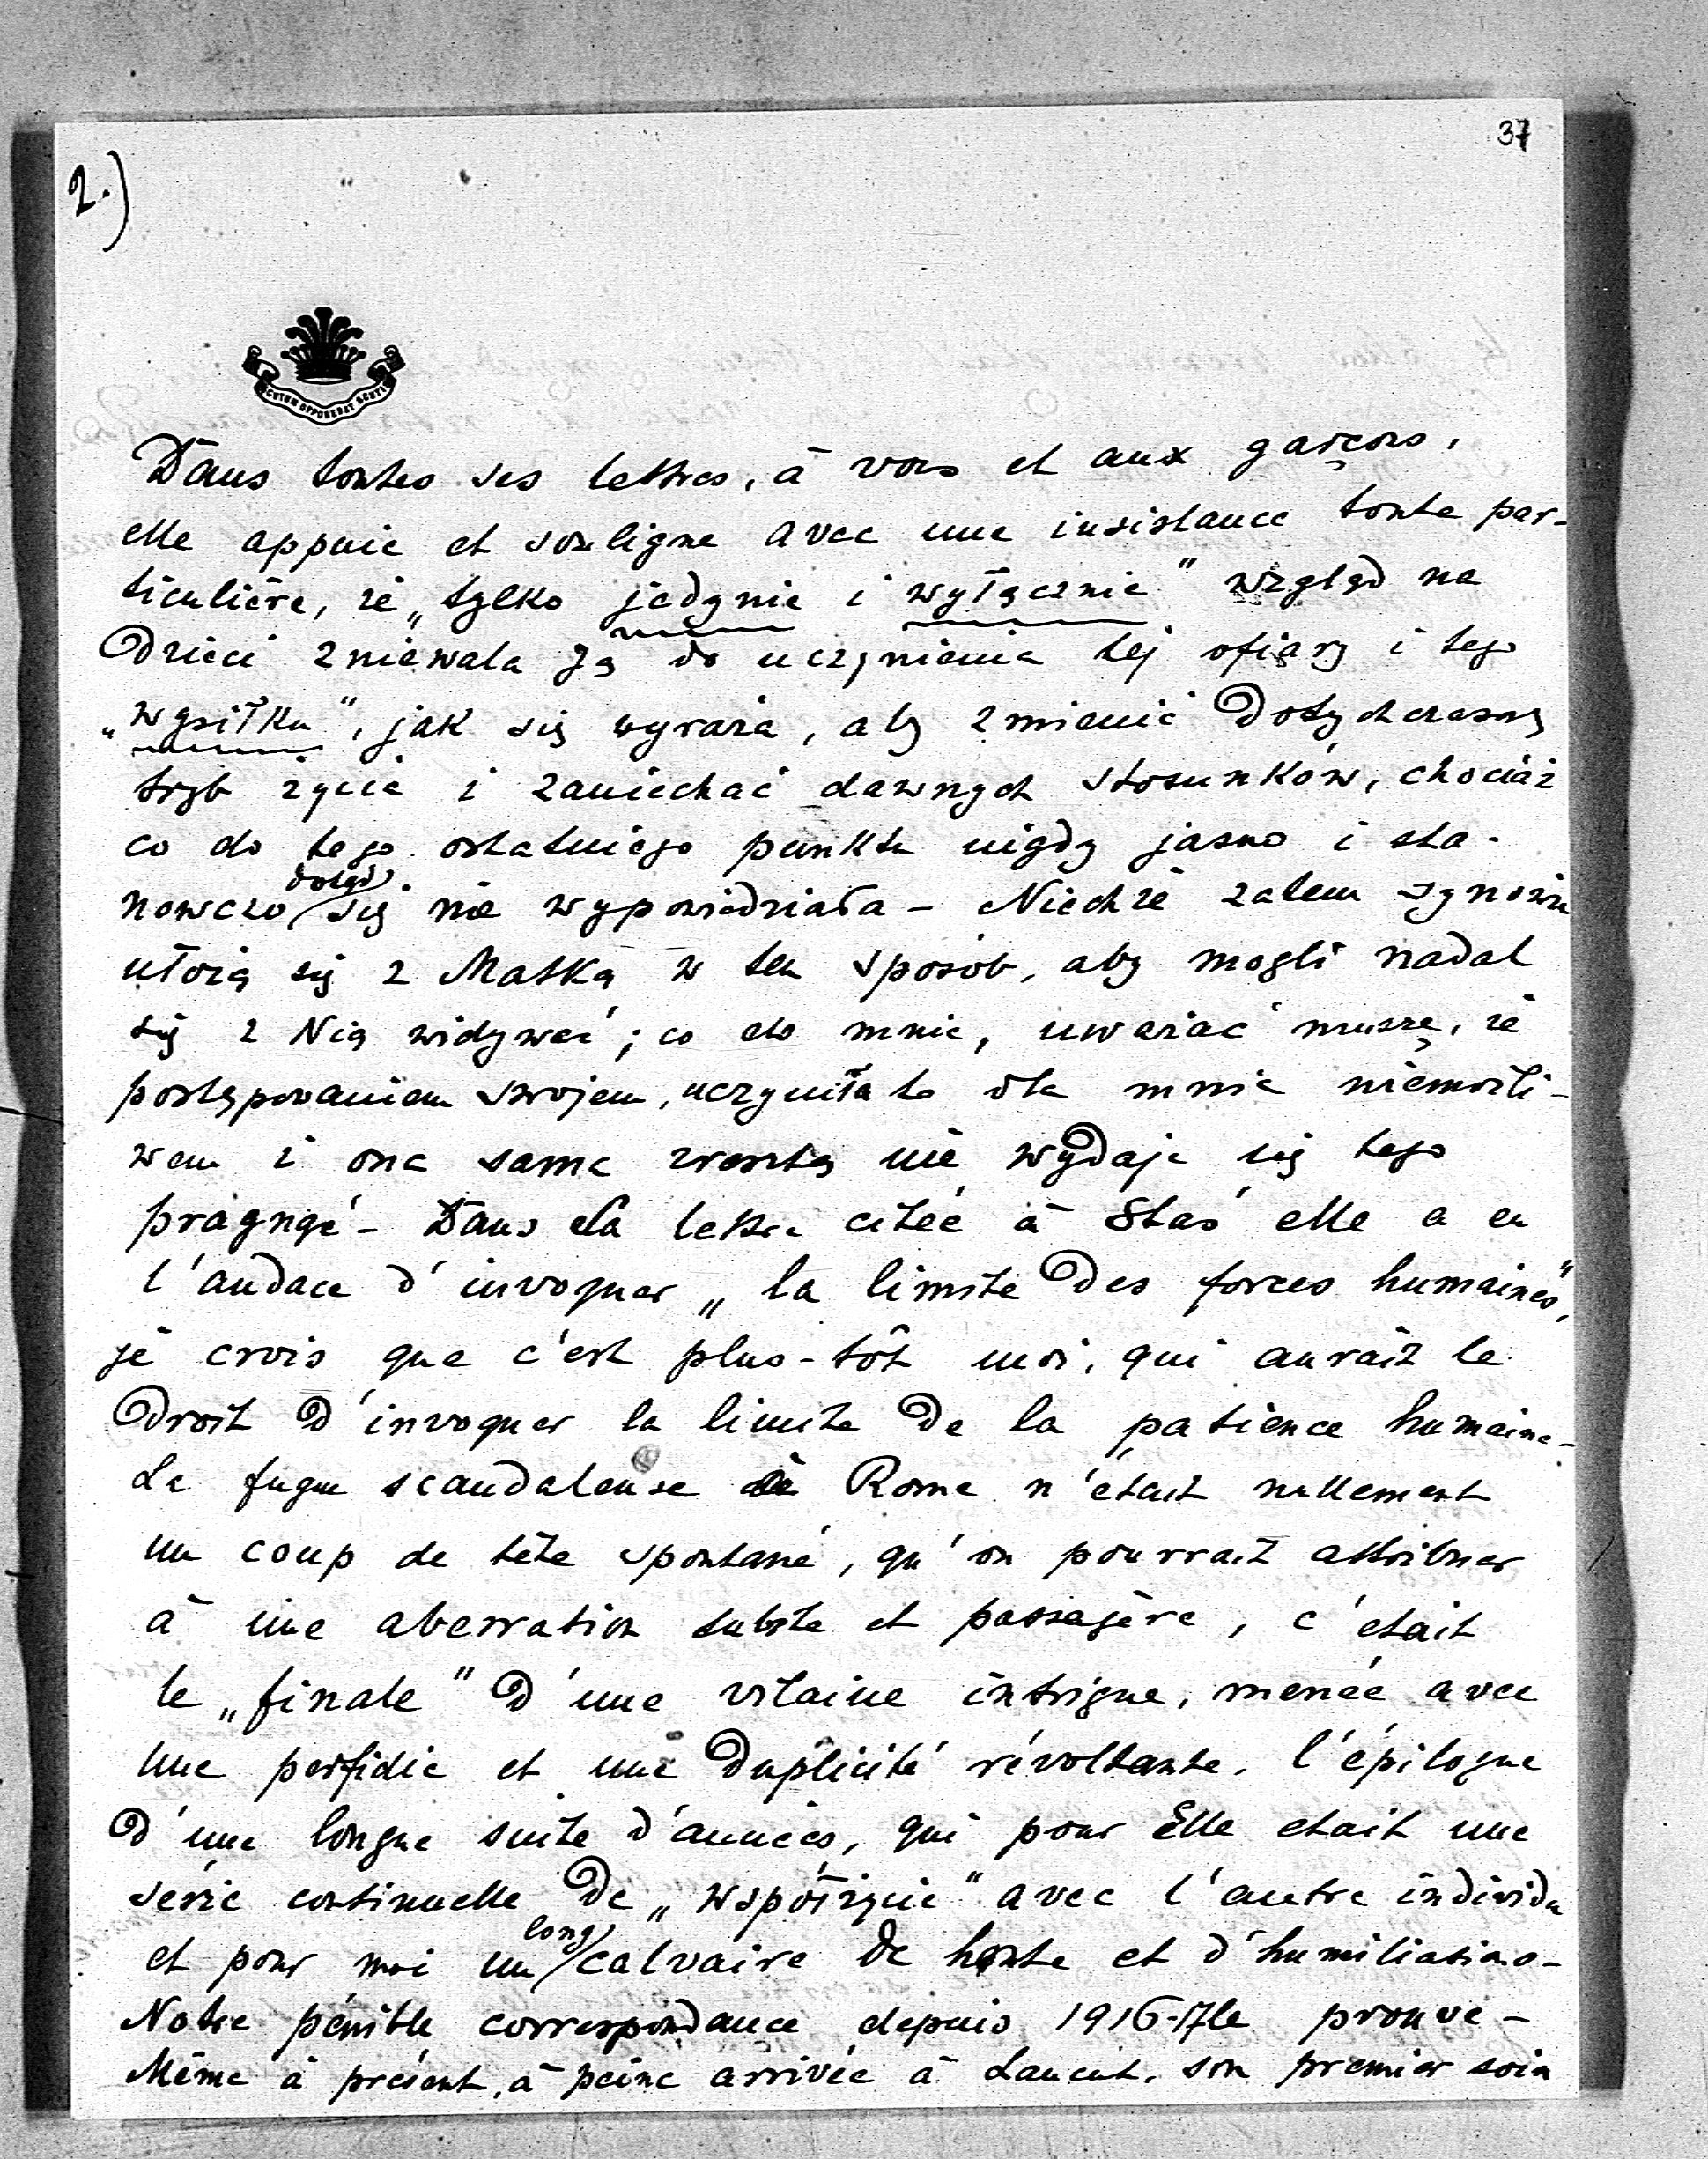 37
2.)
SCUTUM OPPONEBAT SCUTIS
Dans toutes ses lettres, à vous et aux garçons,
elle appuie et souligne avec une insistance toute par-
ticulière, że „tylko jedynie i wyłącznie" wzgląd na
Dzieci zniewala Ją do uczynienia tej ofiary i tego
„wysiłku", jak się wyraża, aby zmienić Dotychczasowy
tryb życia i zaniechać dawnych stosunków, chociaż
co do tego ostatniego punktu nigdy jasno i sta-
nowczo dotąd się nie wypowiedziała – Niechże zatem synowie
ułożą się z Matką w ten sposób, aby mogli nadal
się z Nią widywać; co do mnie, uważać muszę, że
postępowaniem swojem, uczyniła to dla mnie niemożli-
wem i ona sama zresztą nie wydaje się tego
pragnąć – Dans la lettre citée à Staś elle a eu
l'audace d'invoquer „la limite Des forces humaines",
je crois que c'est plus-tôt moi, qui aurait le
Droit D'invoquer la limite De la patience humaine –
La fugue scandaleuse de Rome n'était nullement
un coup de tête spontané, qu'on pourrait attribuer
à une aberration subite et passagère, c'etait
le „finale" D'une vilaine intrigue, menée avec
une perfidie et une Duplicité révoltante, l'épilogue
D'une longue suite d'années, qui pour Elle etait une
série continuelle De „współżycie" avec l'autre individu
et pour moi un long calvaire De honte et d'humiliations –
Notre pénible correspondance depuis 1916-17 le prouve –
Même à présent, à peine arrivée à Lancut, son premier soin